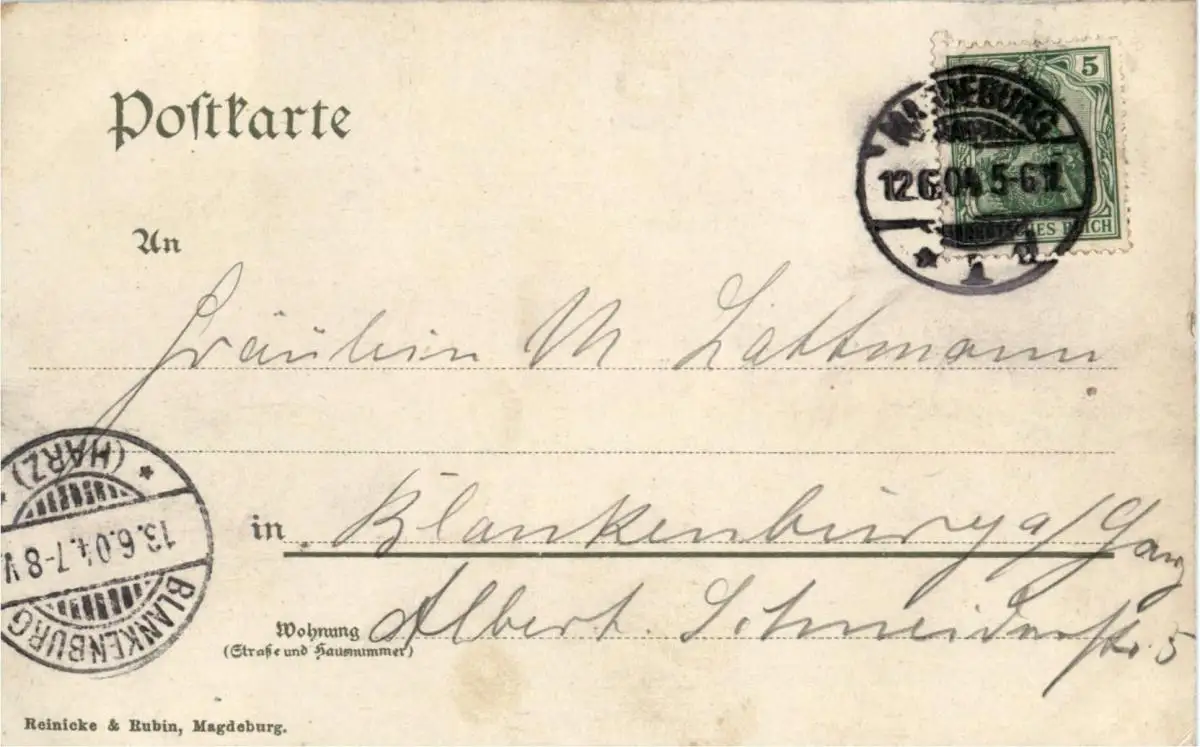 Postkarte
5
MAGDEBURG
12.6.04. 5-6 N.
DEUTSCHES REICH
* 1 d
An
Fräulein M Lattmann
(HARZ)
13.6.04. 7-8 V.
BLANKENBURG
in Blankenburg a/Harz
Wohnung Albert. Schneiderstr. 5
(Straße und Hausnummer)
Reinicke & Rubin, Magdeburg.